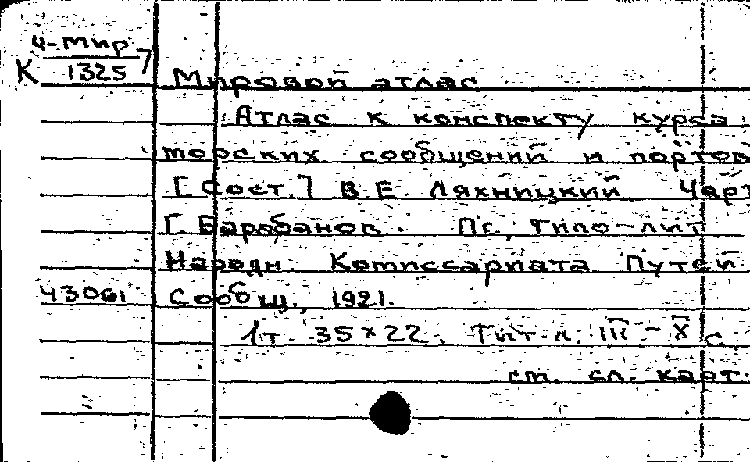 4-Мир 7
К 1325
Мировой атлас
Атлас к конспекту курса
торских сообщений и портов
[Сост.] В.Е. Ляхницкий Черт
Г. Барабанов. Пг., Типо-лит
Народн. Комиссариата Путей
43061 Сообщ., 1921.
1т. 35×22. Тит.л. III - X с.
см. сл. карт.